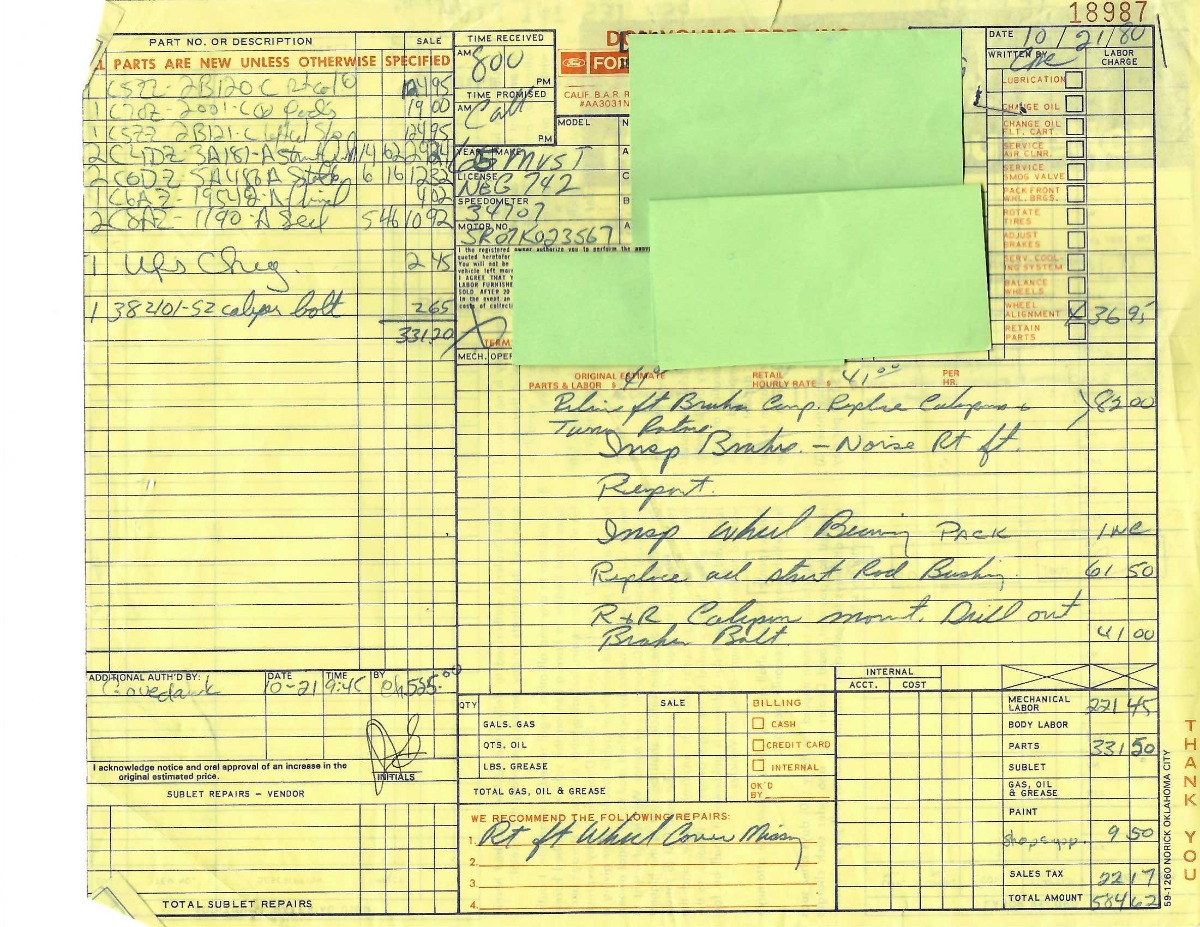 18987
PART NO. OR DESCRIPTION SALE
PARTS ARE NEW UNLESS OTHERWISE SPECIFIED
1 C5ZZ-2B120C 124 95
1 2001- Pads 19 00
1 C5ZZ 2B121-C 124 95
2 C4DZ-3A187-A 14 62 29 24
2 C6DZ 5A486A 6 16 12 32
1 C6AZ-19542-A 4 02
2 C8AZ-1190-A Seal 5 46 10 92
1 UPS Chrg. 2 45
1 382101-S2 caliper bolt 2 65
331 20
TIME RECEIVED
AM 800
PM
TIME PROMISED
AM Call
PM
YEAR MAKE
65 MUST
LICENSE
NBG 742
SPEEDOMETER
34707
MOTOR NO.
5R07K023567
DON YOUNG FORD, INC.
Ford FOR
CALIF. B.A.R. R
#AA3031N
MODEL
I the registered owner authorize you to perform the above
quoted heretofor
You will not be
vehicle left more
I AGREE THAT Y
LABOR FURNISHE
SOLD AFTER 20
In the event an
costs of collecti
X
TERM
MECH. OPER
DATE 10/21/80
WRITTEN BY
LABOR CHARGE
LUBRICATION
CHANGE OIL
CHANGE OIL FLT. CART.
SERVICE AIR CLNR.
SERVICE SMOG VALVE
PACK FRONT WHL. BRGS.
ROTATE TIRES
ADJUST BRAKES
SERV. COOLING SYSTEM
BALANCE WHEELS
WHEEL ALIGNMENT X 36 95
RETAIN PARTS
ORIGINAL ESTIMATE PARTS & LABOR $ 41.00 RETAIL HOURLY RATE $ 41.00 PER HR.
Reline ft Brakes Comp. Replace Calipers & 82 00
Turn Rotors
Insp Brakes. - Noise Rt ft.
Report.
Insp wheel Bearing PACK INC
Replace all strut Rod Bushing. 61 50
R&R Caliper mount. Drill out
Broken Bolt. 41 00
ADDITIONAL AUTH'D BY: DATE TIME BY
10-21 9:45 535.00
I acknowledge notice and oral approval of an increase in the
original estimated price.
INITIALS
SUBLET REPAIRS – VENDOR
TOTAL SUBLET REPAIRS
QTY SALE BILLING
GALS. GAS CASH
QTS. OIL CREDIT CARD
LBS. GREASE INTERNAL
TOTAL GAS, OIL & GREASE OK'D BY
WE RECOMMEND THE FOLLOWING REPAIRS:
1. Rt ft Wheel Cover Missing
2.
3.
4.
INTERNAL
ACCT. COST
MECHANICAL LABOR 221 45
BODY LABOR
PARTS 331 50
SUBLET
GAS, OIL & GREASE
PAINT
Shop supp. 9 50
SALES TAX 22 17
TOTAL AMOUNT 584 62
59-1260 NORICK OKLAHOMA CITY
THANK YOU